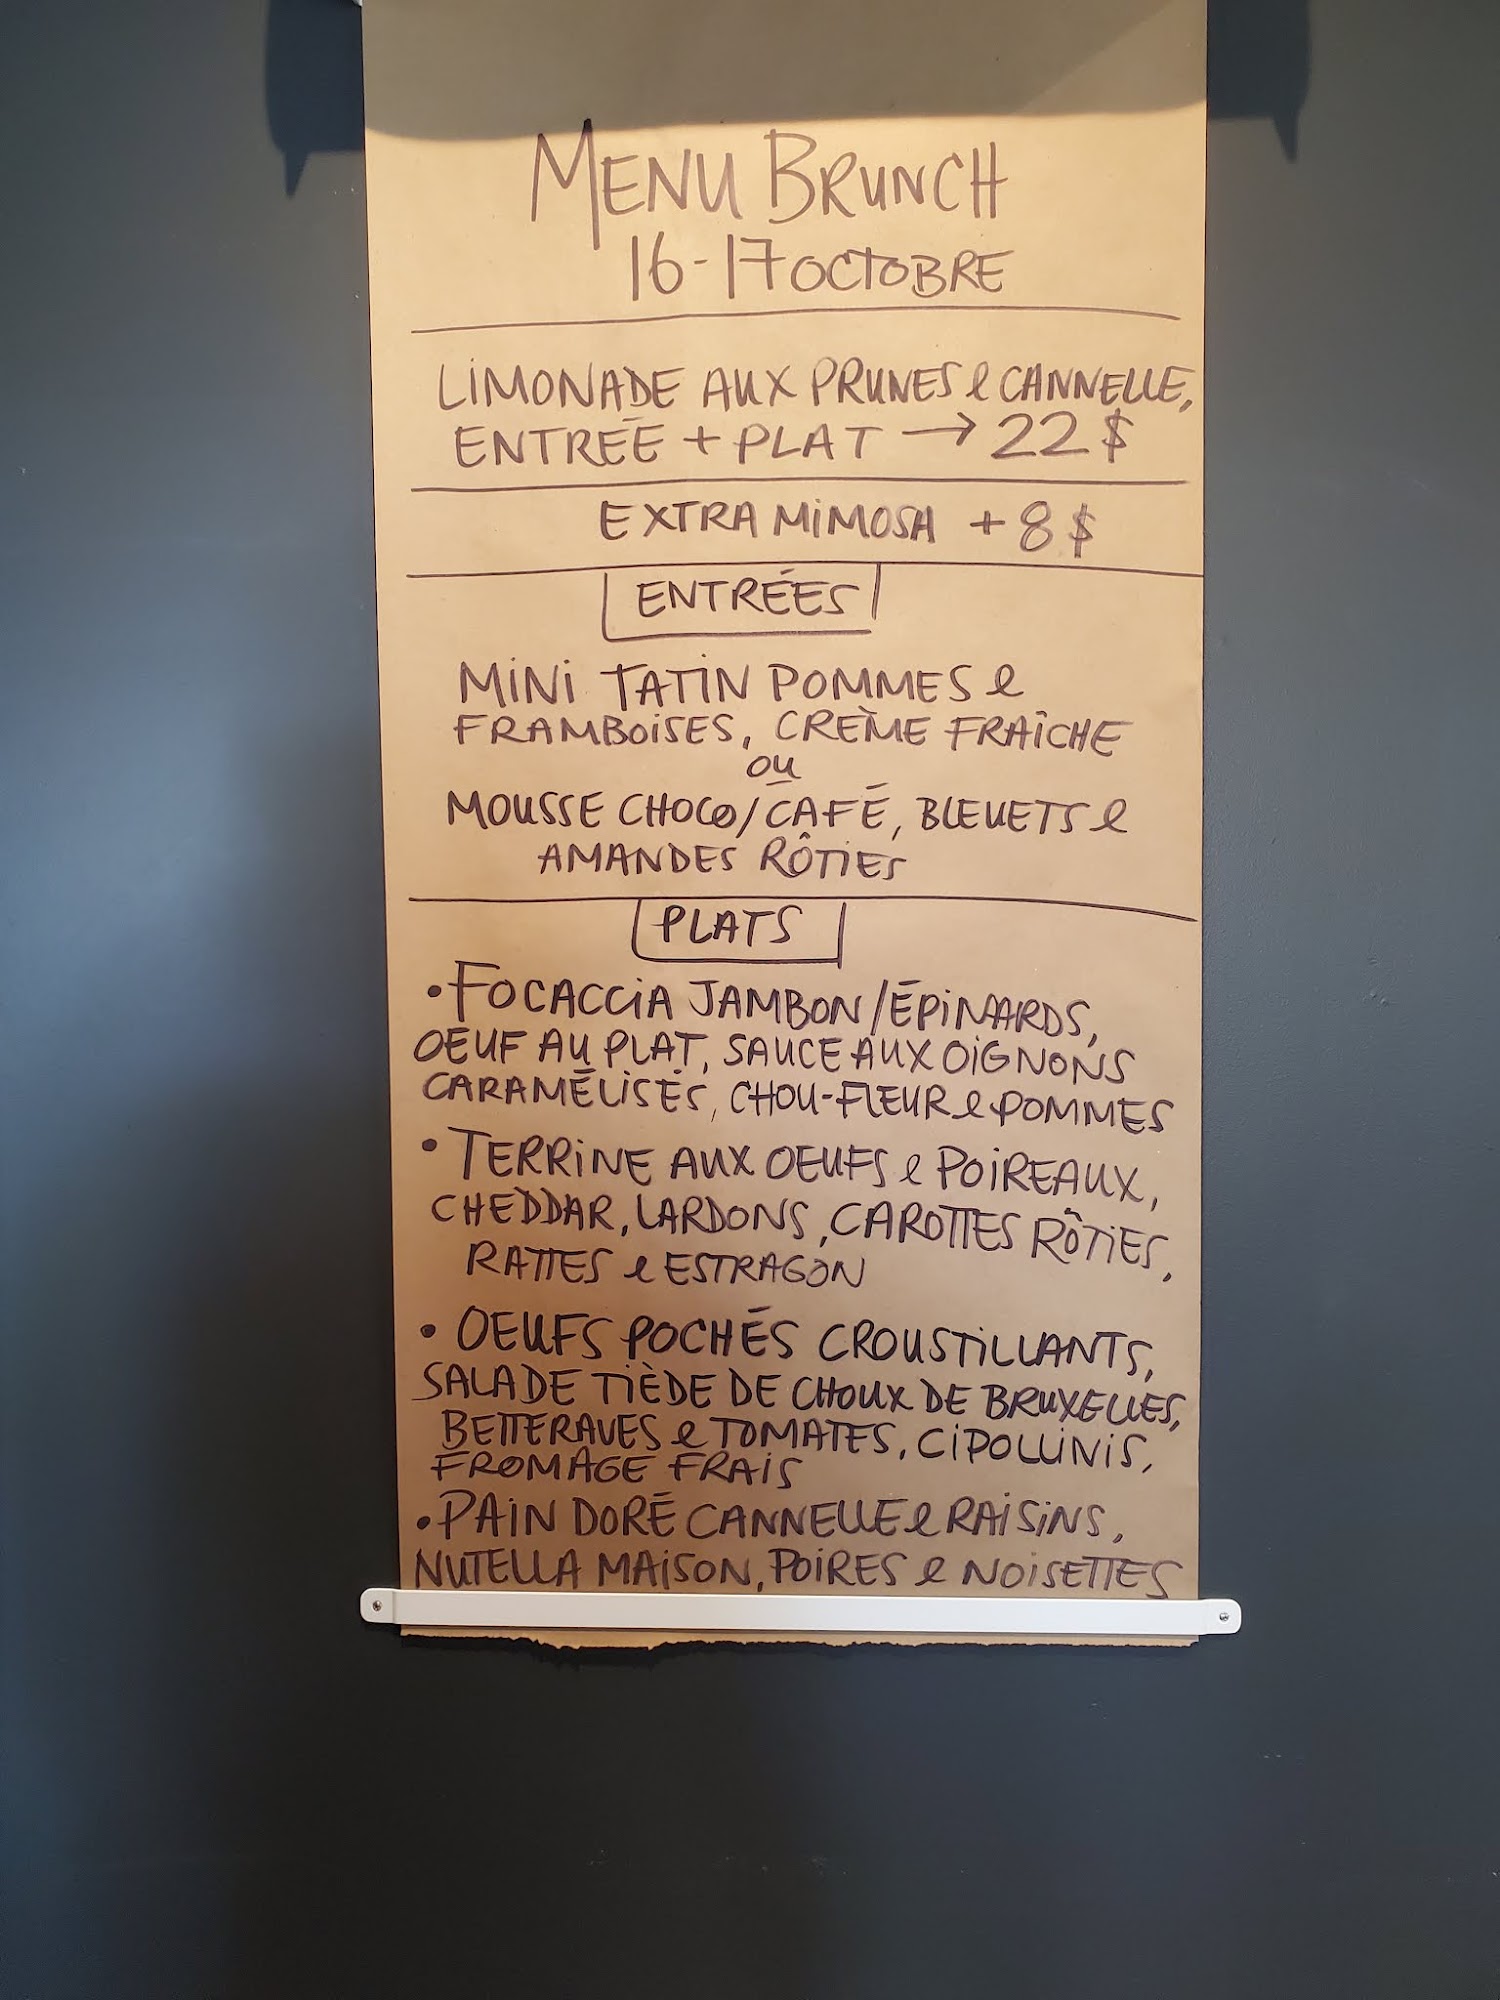 MENU BRUNCH
16-17 OCTOBRE
LIMONADE AUX PRUNES & CANNELLE,
ENTRÉE + PLAT → 22 $
EXTRA MIMOSA + 8 $
ENTRÉES
MINI TATIN POMMES &
FRAMBOISES, CRÈME FRAÎCHE
OU
MOUSSE CHOCO/CAFÉ, BLEUETS &
AMANDES RÔTIES
PLATS
• FOCACCIA JAMBON/ÉPINARDS,
OEUF AU PLAT, SAUCE AUX OIGNONS
CARAMÉLISÉS, CHOU-FLEUR & POMMES
• TERRINE AUX OEUFS & POIREAUX,
CHEDDAR, LARDONS, CAROTTES RÔTIES,
RATTES & ESTRAGON
• OEUFS POCHÉS CROUSTILLANTS,
SALADE TIÈDE DE CHOUX DE BRUXELLES,
BETTERAVES & TOMATES, CIPOLLINIS,
FROMAGE FRAIS
• PAIN DORÉ CANNELLE & RAISINS,
NUTELLA MAISON, POIRES & NOISETTES